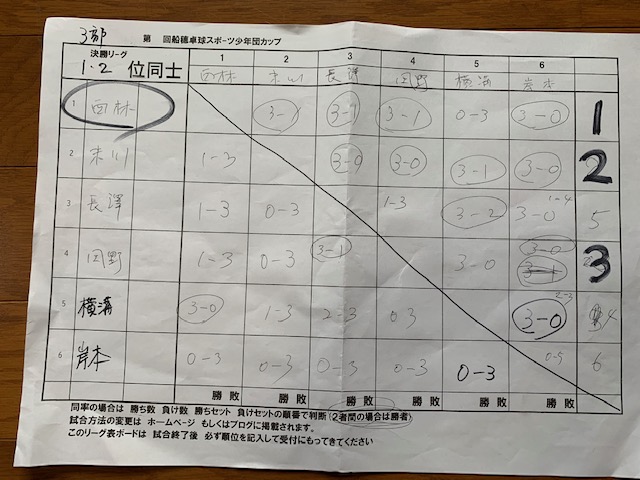 3部
第 回船穂卓球スポーツ少年団カップ
決勝リーグ 1 2 3 4 5 6
1・2 位同士 西林 末川 長澤 岡野 横溝 岸本
1 西林 3-1 3-1 3-1 0-3 3-0 1
2 末川 1-3 3-0 3-0 3-1 3-0 2
3 長澤 1-3 0-3 1-3 3-2 3-0 1-4 5
4 岡野 1-3 0-3 3-1 3-0 3-0 3-1 3
5 横溝 3-0 1-3 2-3 0 3 3-0 2-3 4
6 岸本 0-3 0-3 0-3 0-3 0-3 0-5 6
勝 敗 勝 敗 勝 敗 勝 敗 勝 敗 勝 敗
同率の場合は 勝ち数 負け数 勝ちセット 負けセットの順番で判断(2者間の場合は勝者)
試合方法の変更は ホームページ もしくはブログに掲載されます。
このリーグ表ボードは 試合終了後 必ず順位を記入して受付にもってきてください